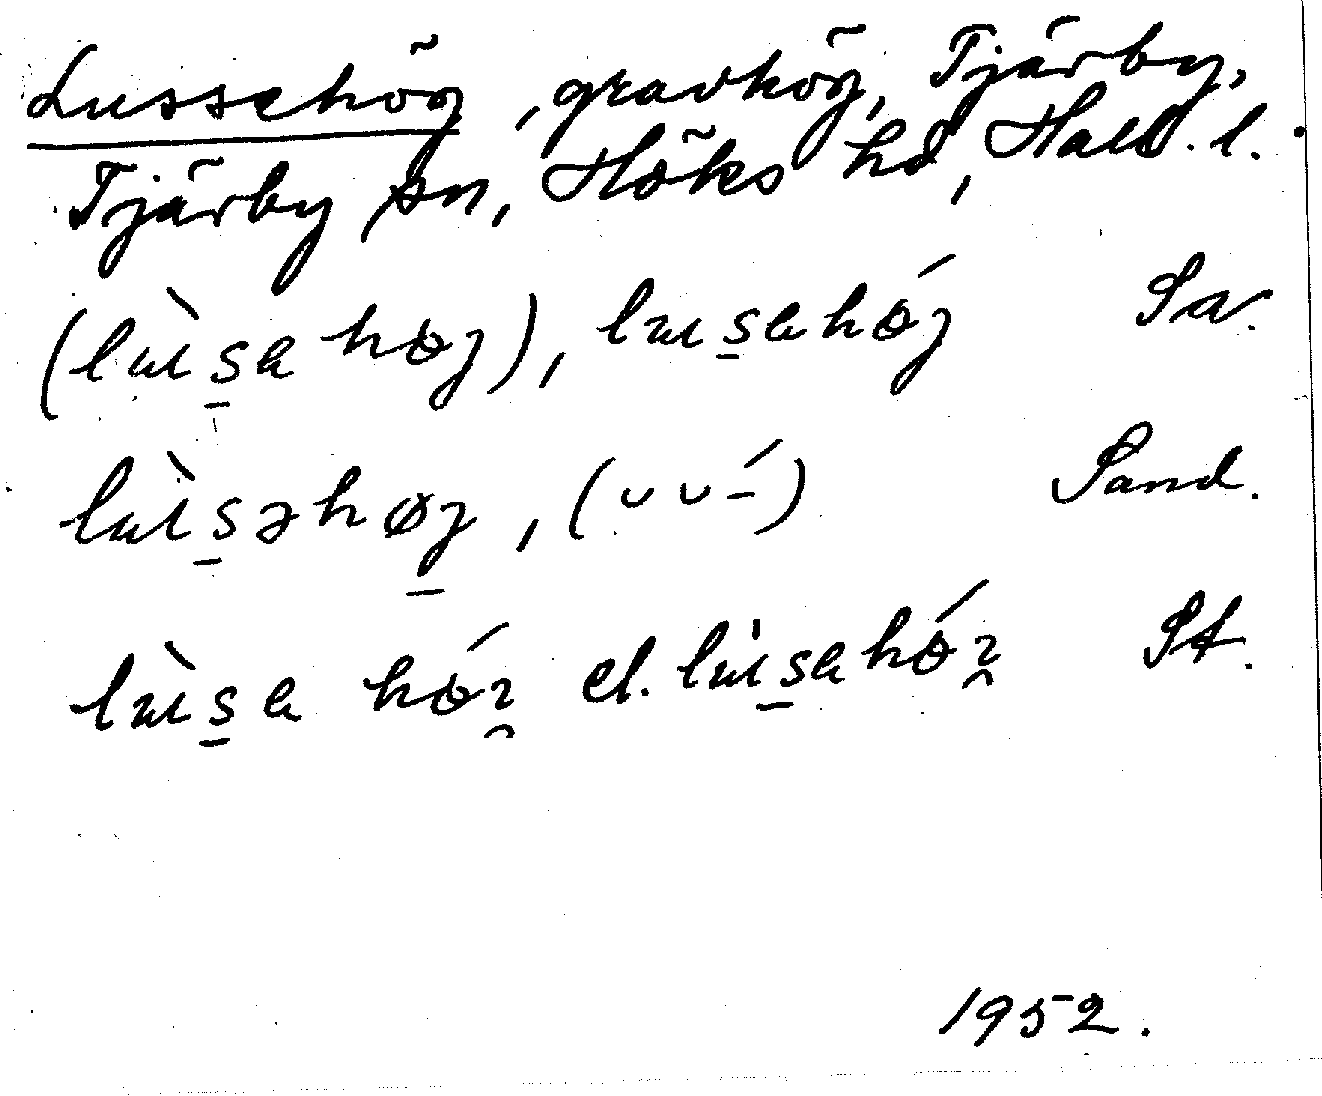 Lussehög, gravhög, Tjärby,
Tjärby sn, Höks hd, Hall. l.
(lùsa høȷ), lusahǿȷ Sa.
lùsəhøȷ, (∪∪–́) Sand.
lùsa hǿı el. lùsahǿı St.
1952.